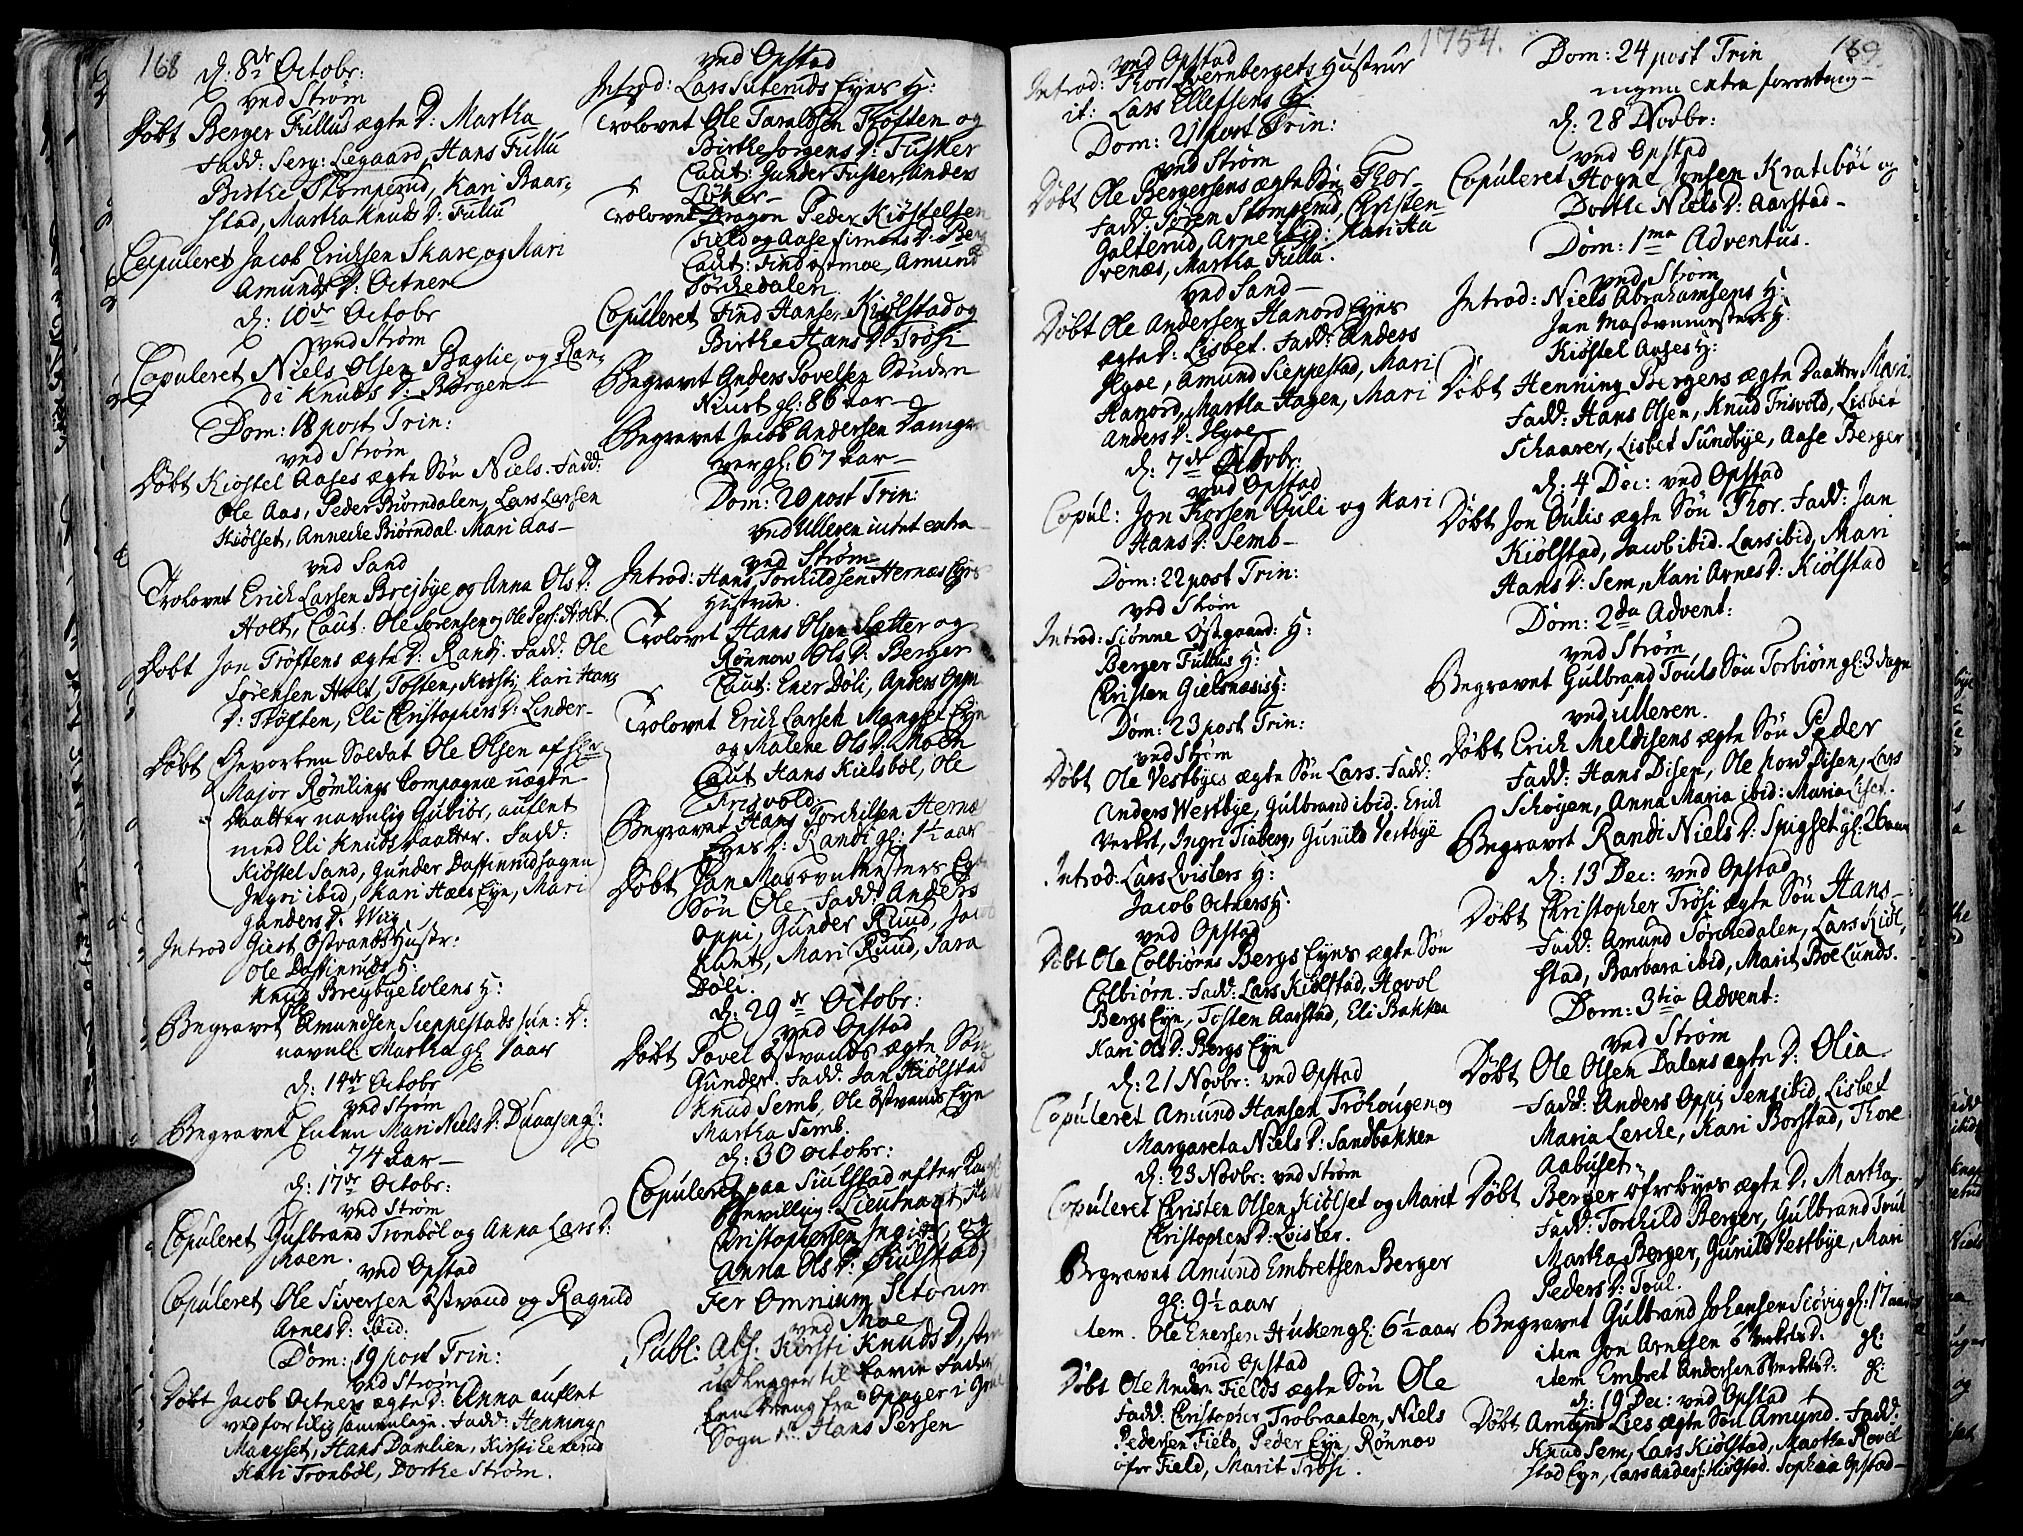 168
d: 8de Octobr:
ved Strøm
Døbt Berger Fullus ægte D: Martha
Fadd: Serg: Legaard, Hans Fullu
Birthe Stomperud, Kari Baar-
stad, Martha Knuds D: Fullu
Copuleret Jacob Erichsen Skare og Mari
Amunds D: Octner
d: 10de Octobr
ved Strøm
Copuleret Niels Olsen Baglie og Ran-
di Knuds D: Børgen
Dom: 18 post Trin:
ved Strøm
Døbt Kiøstel Aases ægte Søn Niels. Fadd:
Ole Aas, Peder Biørndalen, Lars Larsen
Kiølset, Annecke Biørndal. Mari Aas
ved Sand
Trolovet Erich Larsen Brejbye og Anna Ols D:
Holt, Caut: Ole Sørensen og Ole Pers: Holt
Døbt Jon Trøftens ægte D: Randi. Fadd: Ole
Sørensen Holt, Tosten, Kirsti, Kari Hans
D: Trøften, Eli Christophers D: Linder
Døbt Gevorben Soldat Ole Olsen af Hr
Major Rømlings Compagnie uægte
Daatter navnlig Gubiør, auflet
med Eli Knuds Daatter. Fadd:
Kiøstel Sand, Gunder Daffinrudhagen
Ingri ibid, Kari Hæls Eyn, Mari
Gunders D: Wiig
Introd Giest Østvands Hustr:
Ole Daffinruds H:
Knud Breybye Eylens H:
Begravet Ole Amundsen Sieppestads sin: D:
navnl: Martha gl: 1 aar
d: 14de Octobr
ved Strøm
Begravet Enken Mari Niels D: Daaasen gl:
74 aar
d: 17de Octobr:
ved Strøm
Copuleret Gulbrand Tronbøl og Anna Lars D:
Moen.
ved Opstad
Copuleret Ole Siversen Østvand og Ragnild
Arnes D: ibid.
Dom: 19 post Trin:
ved Strøm
Døbt Jacob Octners ægte D: Anna auflet
ved for tilig samenleye. Fadd: Henning
Mangset, Hans Damlien, Kirsti Enerud
Kari Tronbøl, Dorthe Strøm.
ved Opstad
Introd: Lars Suteruds Eyes H:
Trolovet Ole Taraldsen Trøften og
Birthe Jorgens D: Fusker
Caut: Gunder Fusker, Anders
Løker
Trolovet Dragon Peder Kiøstelsen
Field og Aase Simens D: Berg
Caut: Find Østmoe, Amund
Torchedalen
Copuleret Find Hansen Kiølstad og
Birthe Hans D: Trøsi
Begravet Anders Povelsen Sondre
Niurst gl: 86 aar
Begravet Jacob Andersen Damgra
ver gl: 67 aar
Dom: 20 post Trin:
ved Ulleren intet extra
ved Strøm
Introd: Hans Torchildsen Hernæs Eyes
Hustrue.
Trolovet Hans Olsen Sætter og
Rønnow Ols D: Berger
Caut: Ener Døli, Anders Opm
Trolovet Erich Larsen Mangset Eyn
og Malene Ols D: Moen
Caut Hans Kielsbøl, Ole
Frisvold
Begravet Hans Torchilsen Hernæs
Eyes D: Randi gl: 1½ aar
Døbt Jan Masovnmesters Egte
Søn Ole. Fadd: Anders
Oppi, Gunder Ruud, Jacob
Kunt, Mari Ruud, Sara
Døli.
d: 29de Octobr:
ved Opstad
Døbt Povel Østvands ægte Søn
Gunder. Fadd: Jan Kiølstad
Knud Semb, Ole Østvands Eyn
Martha Semb.
d: 30 Octobr:
Copuleret paa Siulstad efter Kong
Bevilling Lieutnant
Christophersen Ingier, og
Anna Ols D: Siulstad
Fer Omnium Sctorum
ved Moe
Publ: Abs: Kirsti Knuds D,
udlegger til Barne Fader
Een Dreng fra Opager i
Sogn Hans Persen
1754.
169.
ved Opstad
Introd: Thor Qvernbergets Hustrue
it: Lars Ellefsens H:
Dom: 21 post Trin:
ved Strøm
Døbt Ole Bergersens ægte Søn Thor
Fadd: Søren Stomperud, Christen
Galterud, Arne ibid: Kari Ha
venæs, Martha Fullu.
ved Sand
Døbt Ole Andersen Hanord Eyes
ægte D: Lisbet. Fadd: Anders
Hyoe, Amund Sieppestad, Mari
Hanord, Martha Hagen, Mari
Anders D: Hyoe
d: 7de Novbr:
ved Opstad
Copul: Jon Thorsen Ouli og Kari
Hans D: Semb
Dom: 22 post Trin:
ved Strøm
Introd: Siønne Østgaard: H:
Berger Fullus H:
Christen Gielsnæsis H:
Dom: 23 post Trin:
ved Strøm
Døbt Ole Vestbyes ægte Søn Lars. Fadd:
Anders Westbye, Gulbrand ibid. Erich
Verket, Ingri Tiaberg, Gunild Vestbye
Introd: Lars Qvislers H:
Jacob Octners H:
ved Opstad
Døbt Ole Colbiørns Bergs Eynes ægte Søn
Colbiørn. Fadd: Lars Kiølstad, Havol
Bergs Eyn, Tosten Aarstad, Eli Bakken
Kari Ols D: Bergs Eyn
d: 21 Novbr: ved Opstad
Copuleret Amund Hansen Trøhougen og
Margareta Niels D: Sandbakken
d: 23 Novbr: ved Strøm
Copuleret Christen Olsen Kiølset og Marit
Christophers D: Qvisler.
Begravet Amund Embretsen Berger
gl: 9½ aar
item. Ole Enersen Huken gl: 6½ aar
ved Opstad
Døbt Ole Neder Fields ægte Søn Ole
Fadd: Christopher Trobraaten, Niels
Pedersen Field, Peder Eyn, Rønnov
Øfre Field, Marit Trøsi.
Dom: 24 post Trin
ingen extra forretning
d: 28 Novbr:
ved Opstad
Copuleret Hogne Jensen Kratibøl og
Dorthe Niels D: Aarstad
Dom: 1ma Adventus.
ved Strøm
Introd: Niels Abrahamsens H:
Jan Masovnmesters H:
Kiøstel Aases H:
Døbt Henning Bergers ægte Daatter Mari.
Fadd: Hans Olsen, Knud Frisvold, Lisbet
Schaarer, Lisbet Sundbye, Aase Berger
d: 4 Dec: ved Opstad
Døbt Jon Oulis ægte Søn Thor. Fadd: Jan
Kiølstad, Jacob ibid. Lars ibid, Mari
Hans D: Sem, Kari Arnes D: Kiølstad
Dom: 2da Advent:
ved Strøm
Begravet Gulbrand Touls Søn Torbiørn gl: 3 dage
ved Ulleren.
Døbt Erich Meldisens ægte Søn Peder
Fadd: Hans Disen, Ole Nord Disen, Lars
Schøyen, Anna Maria ibid: Maria Liset.
Begravet Randi Niels D: Spigset gl: 26 aar
d: 13 Dec: ved Opstad
Døbt Christopher Trøsi ægte Søn Hans
Fadd: Amund Torchedalen, Lars Kiøl,
stad, Barbara ibid, Marit Boe Lunds.
Dom: 3tia Advent:
ved Strøm
Døbt Ole Olsen Dalens ægte D: Olia
Fadd: Anders Oppi, Jens ibid, Lisbet
Maria Lerche, Kari Borstad, Thore
Aabuset
Døbt Berger Øfrebyes ægte D: Martha
Fadd: Torchild Berger, Gulbrand Toul
Martha Berger, Gunild Vestbye, Mari
Peders D: Toul.
Begravet Gulbrand Johansen Siøvig gl: 17 aar
item Jon Arnesen Verkets D: gl:
item Embret Andersen Verkets D: gl:
d: 19 Dec: ved Opstad
Døbt Amund Lies ægte Søn Amund. Fadd:
Knud Sem, Lars Kiølstad, Martha Røvel
stad Eyn, Lars Anders: Kiølstad. Sophia Opstad